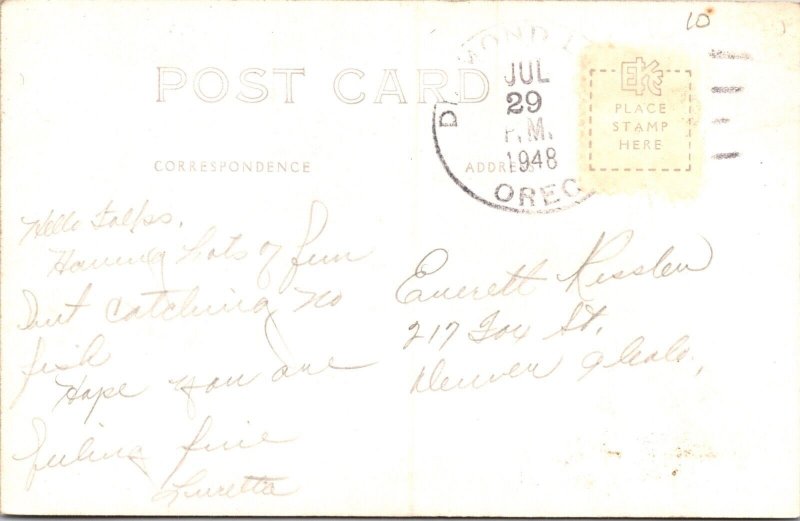 10
POST CARD
JUL
29
P.M.
1948
OREG
EKC
PLACE
STAMP
HERE
CORRESPONDENCE
ADDRESS
Hello Folks,
Having Lots of fun
But catching no
fish
Hope you are
feeling fine
Luretta
Everett Rissler
217 Fox St.
Denver 9 Colo,